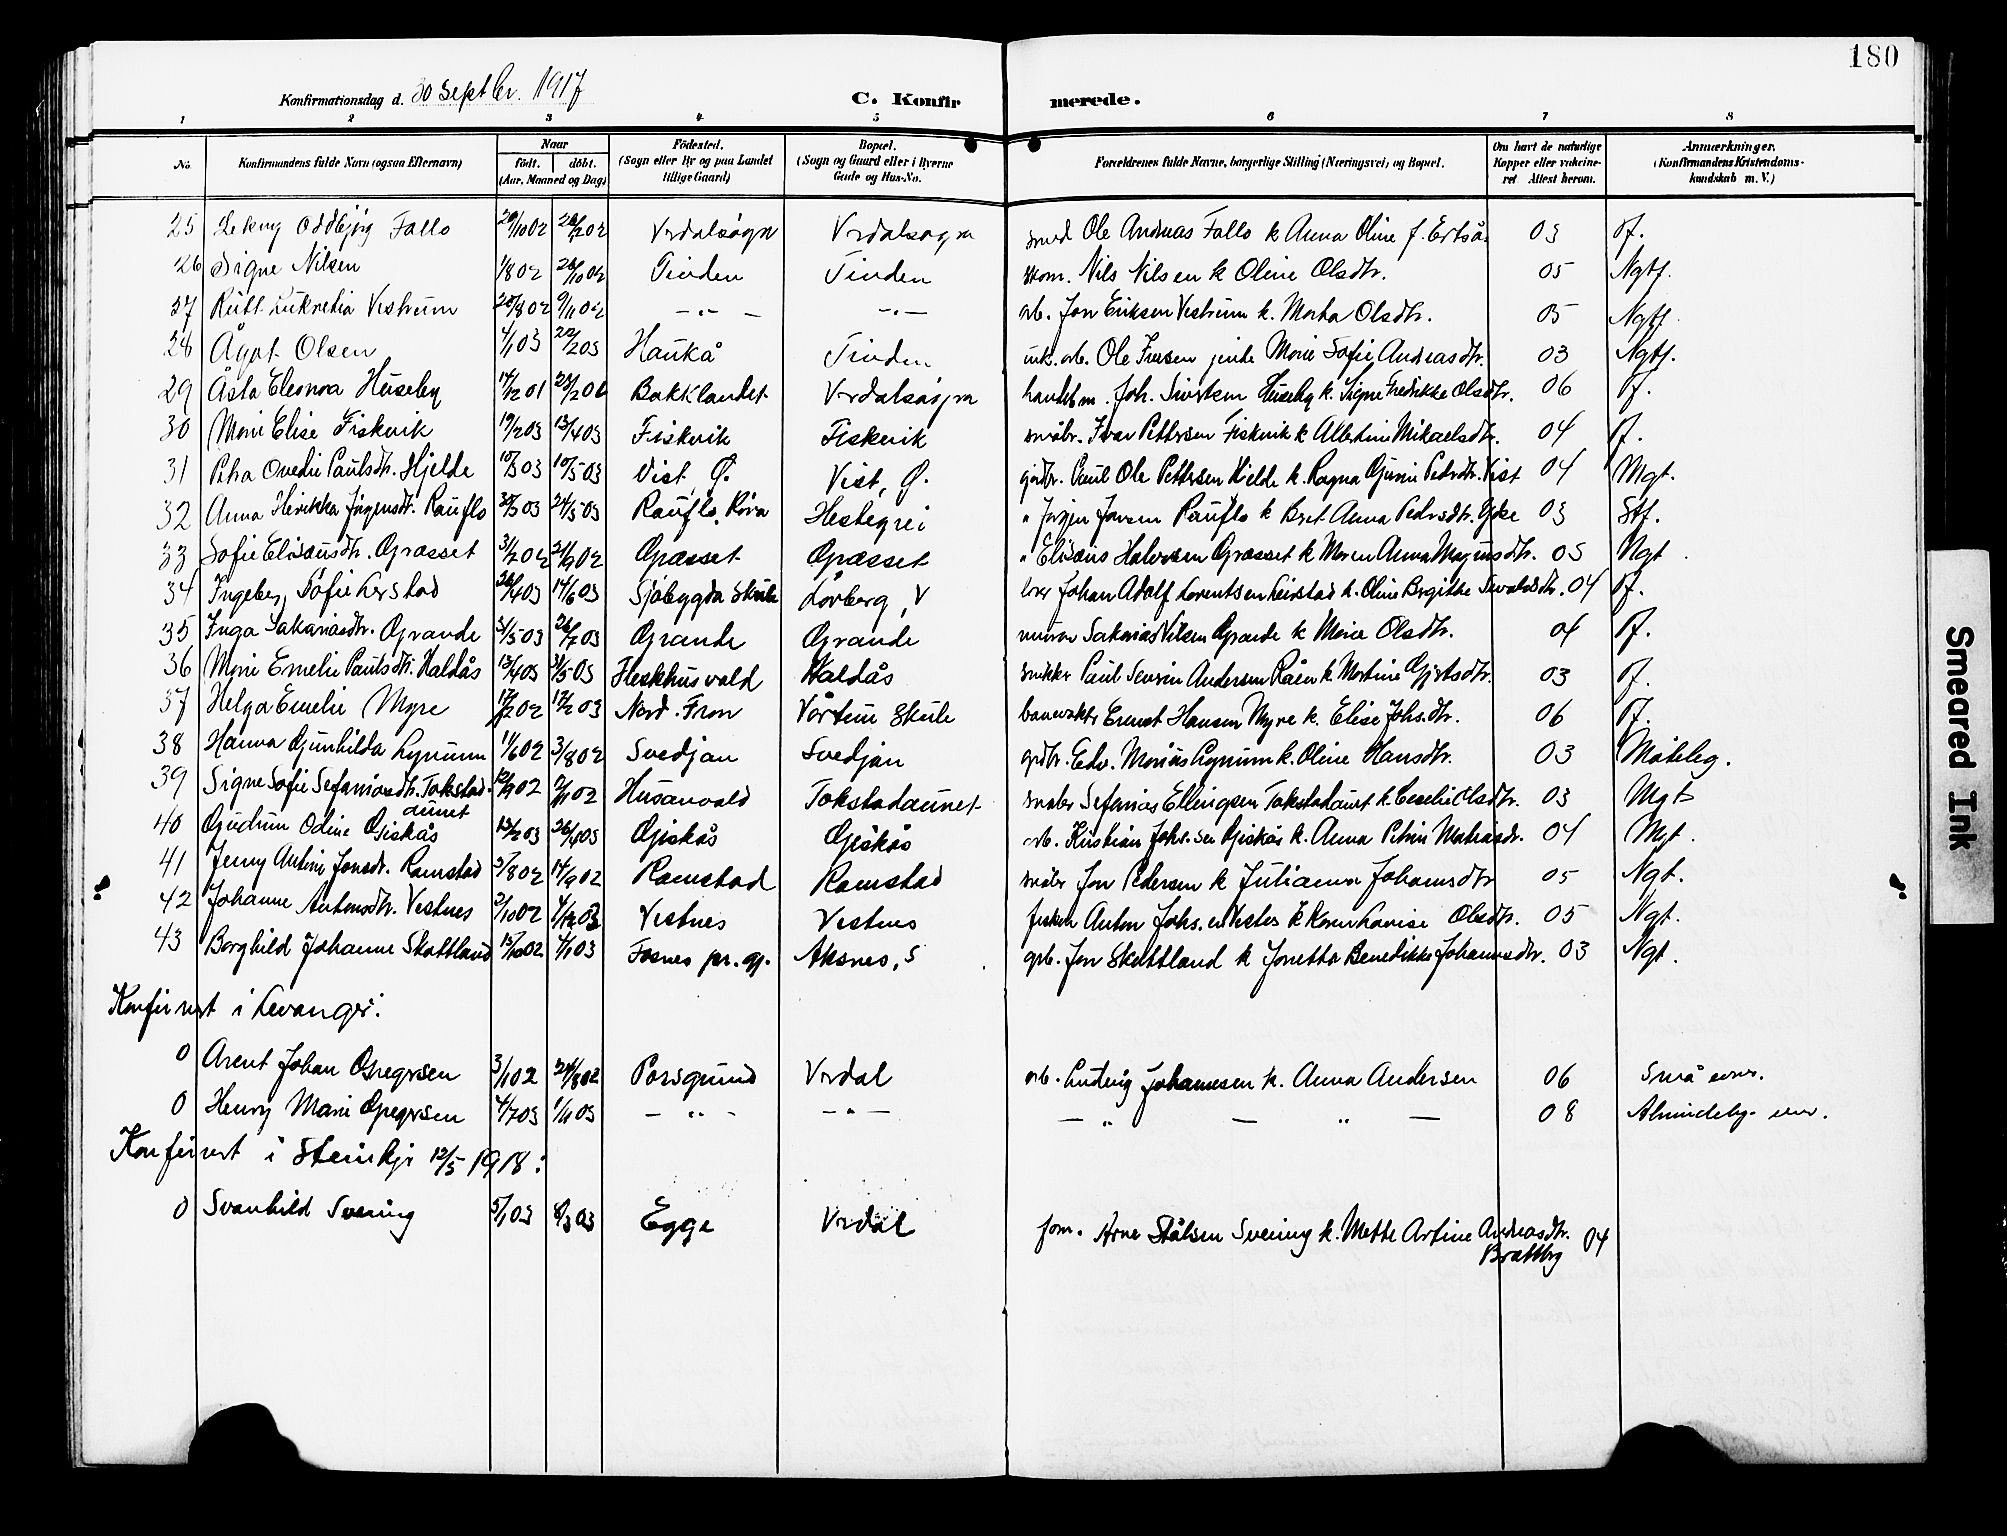 180
Konfirmationsdag d. 30 Septbr. 1917
C. Konfirmerede.
1 2 3 4 5 6 7 8
No. Konfirmandens fulde Navn (ogsaa Efternavn) Naar født. døbt. (Aar, Maaned og Dag) Fødested. (Sogn eller By og paa Landet tillige Gaard) Bopæl. (Sogn og Gaard eller i Byerne Gade og Hus-No. Forældrenes fulde Navne, borgerlige Stilling (Næringsvei) og Bopæl. Om havt de naturlige Kopper eller vakcineret Attest herom. Anmærkninger. (Konfirmandens Kristendomskundskab m. V.)
25 Oddbjörg Fallo 29/10 02 Verdalsøgn Verdalsøgn smed Ole Andreas Fallo k Anna Oline f. 03
26 Signe Nilsen 1/8 02 26/10 02 Tinden Tinden Nils Nilsen k Oline Olsdtr. 05 Ngtf.
27 Rutt Lukretia Vestrum 28/8 02 9/11 02 — „ — — „ — arb. Jon Eriksen Vestrum k. Marta Olsdtr. 05 Ngtf.
28 Ågot Olsen 4/1 03 22/2 03 Haukå Tinden Ole pike Marie Sofie Andreasdtr. 03 Ngtf.
29 Åsta Eleonora Huseby 14/12 01 Bakklandet Verdalsøgn handelsm. Joh. Sivertsen Huseby k. Signe Fredrikke Olsdtr. 06
30 Marie Elise Fiskvik 19/2 03 13/4 03 Fiskvik Fiskvik småbr. Ivar Pettersen Fiskvik k Albertine Mikaelsdtr. 04
31 Petra Ovedie Paulsdtr. Hjelde 10/3 03 10/5 03 Vist, Ø. Vist, Ø. gårdbr. Paul Ole Pettersen Hjelde k. Ragna Gjurine Pedrsdtr. Vist 04 Mgt.
32 Anna Henrikka Jörgensdtr. Rauflo 24/5 03 Rauflo, Röra Hestegrei „ Jörgen Jonsen Rauflo k Beret Anna Pedrsdtr. 03 Stf.
33 Sofie Elisausdtr. Græsset 31/7 02 21/9 02 Græsset Græsset „ Elisæus Halvorsen Græsset k Maren Anna Magnusdtr. 05 Ngt
34 Ingeborg Sofie Leirstad 26/4 03 14/6 03 Sjöbygda Skule Lörberg, V lærer Johan Adolf Lorentsen Leirstad k. Oline Birgitte Sivaldsdtr. 04
35 Inga Sakariasdtr. Grande 31/5 03 26/7 03 Grande Grande murar Sakarias Nilsen Grande k Marie Olsdtr. 04
36 Marie Emelie Paulsdtr. Haldås 13/4 03 31/5 03 Heskhusvald Haldås snikker Paul Severin Andersen Råen k Martine Gjertsdtr. 03
37 Helga Emelie Myre 02 12/2 03 Nord-Fron Vårtun Skule banevakt Ernest Hansen Myre k. Elise Johs.dtr. 06
38 Hanna Gunhilda Lynum 11/6 02 3/8 02 Svedjan Svedjan gårdbr. Edv. Marius Lynum k. Oline Hansdtr. 03 Måteleg.
39 Signe Sofie Sefaniasdtr. Tokstad-
aunet 02 Husanvald Tokstadaunet småbr Sefanias Ellingsen Tokstadaunet k. Cecelie Olsdtr. 03 Mgt
40 Gudrun Odine Giskås 13/2 03 26/4 03 Giskås Giskås arb. Kristian Johs.sen Giskås k. Anna Petrine Matiasdtr. 04 Mgt.
41 Jenny Antine Jonsdtr. Ramstad 3/8 02 14/9 02 Ramstad Ramstad småbr Jon Pedersen k Julianna Johansdtr 05 Ngt.
42 Johanne Antonsdtr. Vestnes 2/10 02 Vestnes Vestnes fisker Anton Johs.en Vestnes k Karen Lovise Olsdtr. 05 Ngt.
43 Borghild Johanne Skattland 15/10 02 4/1 03 Fosnes pr. gj. Aksnes, S gårdb. Jon Skattland k Jonetta Benedikte Johannesdtr. 03 Ngt.
Konfirmert i Levanger:
0 Arent Johan Gregersen 3/1 02 24/8 02 Porsgrund Verdal arb. Ludvig Johannesen k. Anna Andersen 06 Små evner.
0 Henry Marie Gregersen 4/7 03 1/11 03 — „ — — „ — — „ — „ — 08 Almindelig evn.
Konfirmert i Steinkjer 12/5 1918:
0 Svanhild Sveing 5/1 03 8/3 03 Egge Verdal form. Arne Stålsen Sveing k. Mette Artine Andreasdtr.
Brattberg 04
Smeared Ink